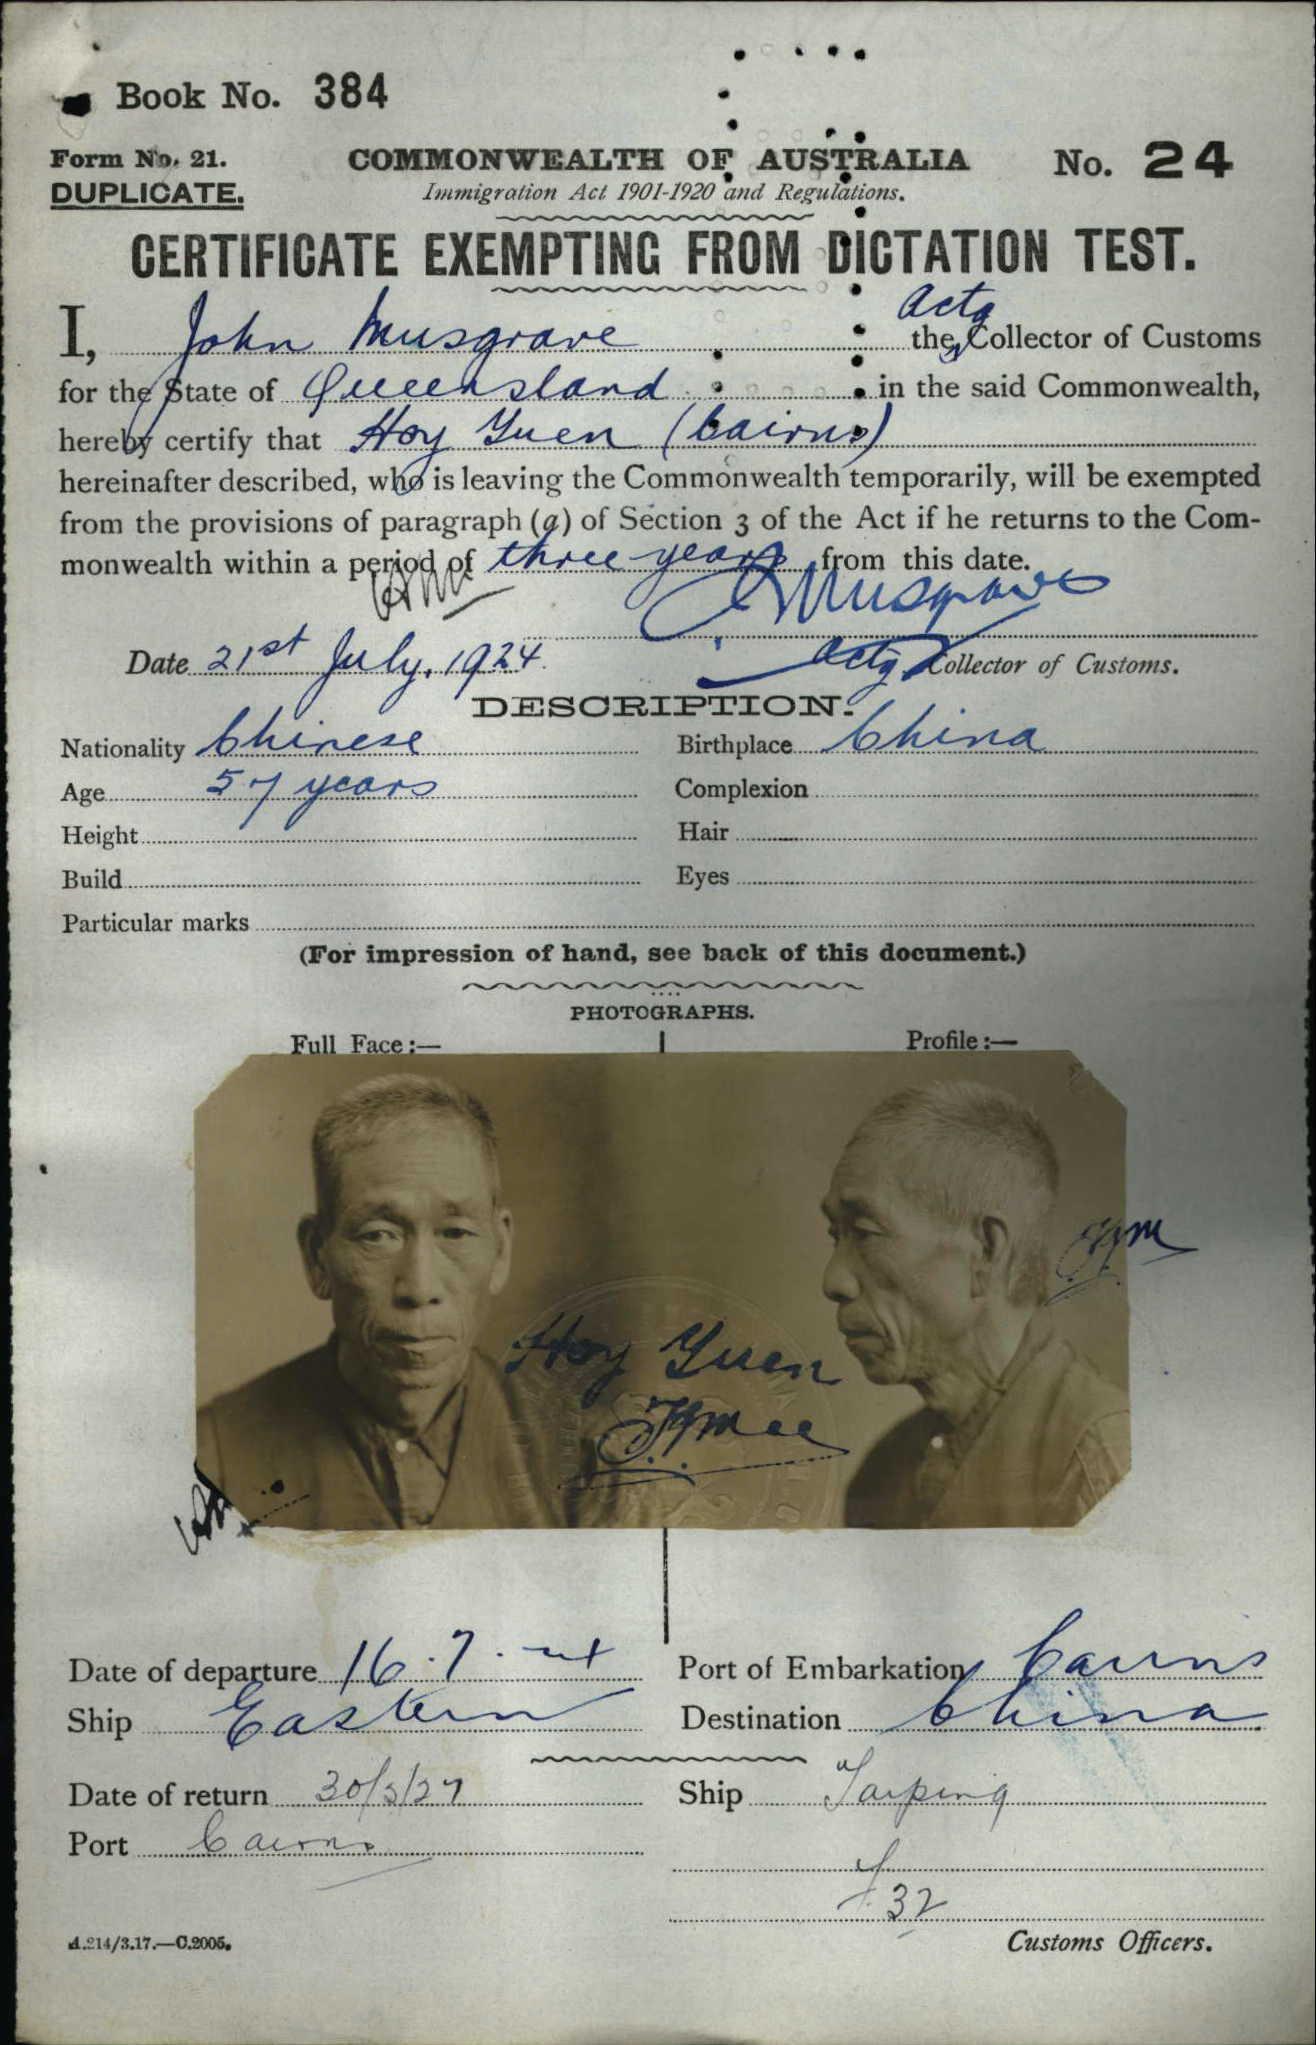 Book No. 384
Form No. 21.
COMMONWEALTH OF AUSTRALIA
No. 24
DUPLICATE.
Immigration Act 1901-1920 and Regulations.
CERTIFICATE EXEMPTING FROM DICTATION TEST.
I, John Musgrave the Actg Collector of Customs
for the State of Queensland in the said Commonwealth,
hereby certify that Hoy Yuen (Cairns)
hereinafter described, who is leaving the Commonwealth temporarily, will be exempted
from the provisions of paragraph (a) of Section 3 of the Act if he returns to the Com-
monwealth within a period of three years from this date.
Musgrave
Date 21st July, 1924
Actg Collector of Customs.
DESCRIPTION.
Nationality Chinese
Birthplace China
Age 57 years
Complexion
Height
Hair
Build
Eyes
Particular marks
(For impression of hand, see back of this document.)
PHOTOGRAPHS.
Full Face :—
Profile :—
Hoy Yuen
Date of departure 16.7.24
Port of Embarkation Cairns
Ship Eastern
Destination China
Date of return 30/3/27
Ship Taiping
Port Cairns
32
A.214/3.17.—C.2005.
Customs Officers.